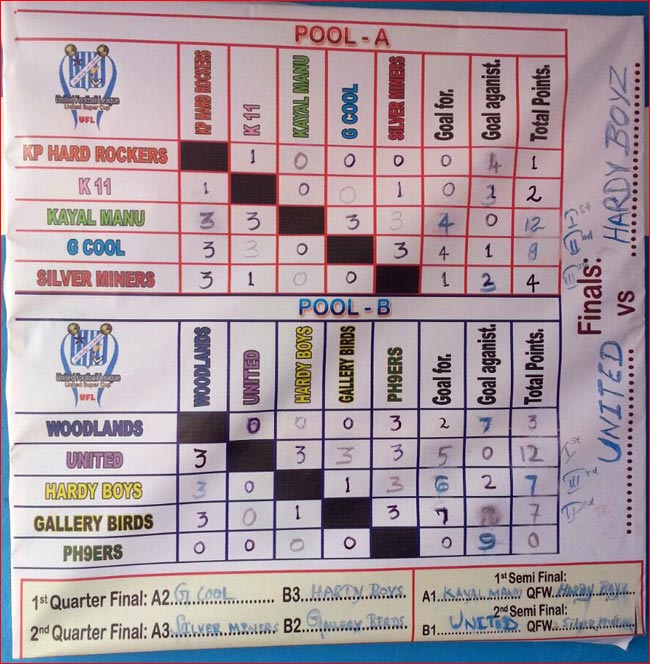 POOL - A
United Football League
United Super Cup
UFL
KP HARD ROCKERS K 11 KAYAL MANU G COOL SILVER MINERS Goal for. Goal aganist. Total Points.
KP HARD ROCKERS 1 0 0 0 0 4 1
K 11 1 0 0 1 0 3 2
KAYAL MANU 3 3 3 3 4 0 12 Ist
G COOL 3 3 0 3 4 1 9
SILVER MINERS 3 1 0 0 1 2 4
POOL - B
United Football League
United Super Cup
UFL
WOODLANDS UNITED HARDY BOYS GALLERY BIRDS PH9ERS Goal for. Goal aganist. Total Points.
WOODLANDS 0 0 0 3 2 7 3
UNITED 3 3 3 3 5 0 12 Ist
HARDY BOYS 3 0 1 3 6 2 7 IIIrd
GALLERY BIRDS 3 0 1 3 7 7
PH9ERS 0 0 0 0 0 9 0
Finals: UNITED VS HARDY BOYZ
1st Quarter Final: A2 G COOL B3 HARDY BOYS
2nd Quarter Final: A3 SILVER MINERS B2 GALLERY BIRDS
1st Semi Final:
A1 KAYAL MANU QFW HARDY BOYZ
2nd Semi Final:
B1 UNITED QFW SILVER MINERS